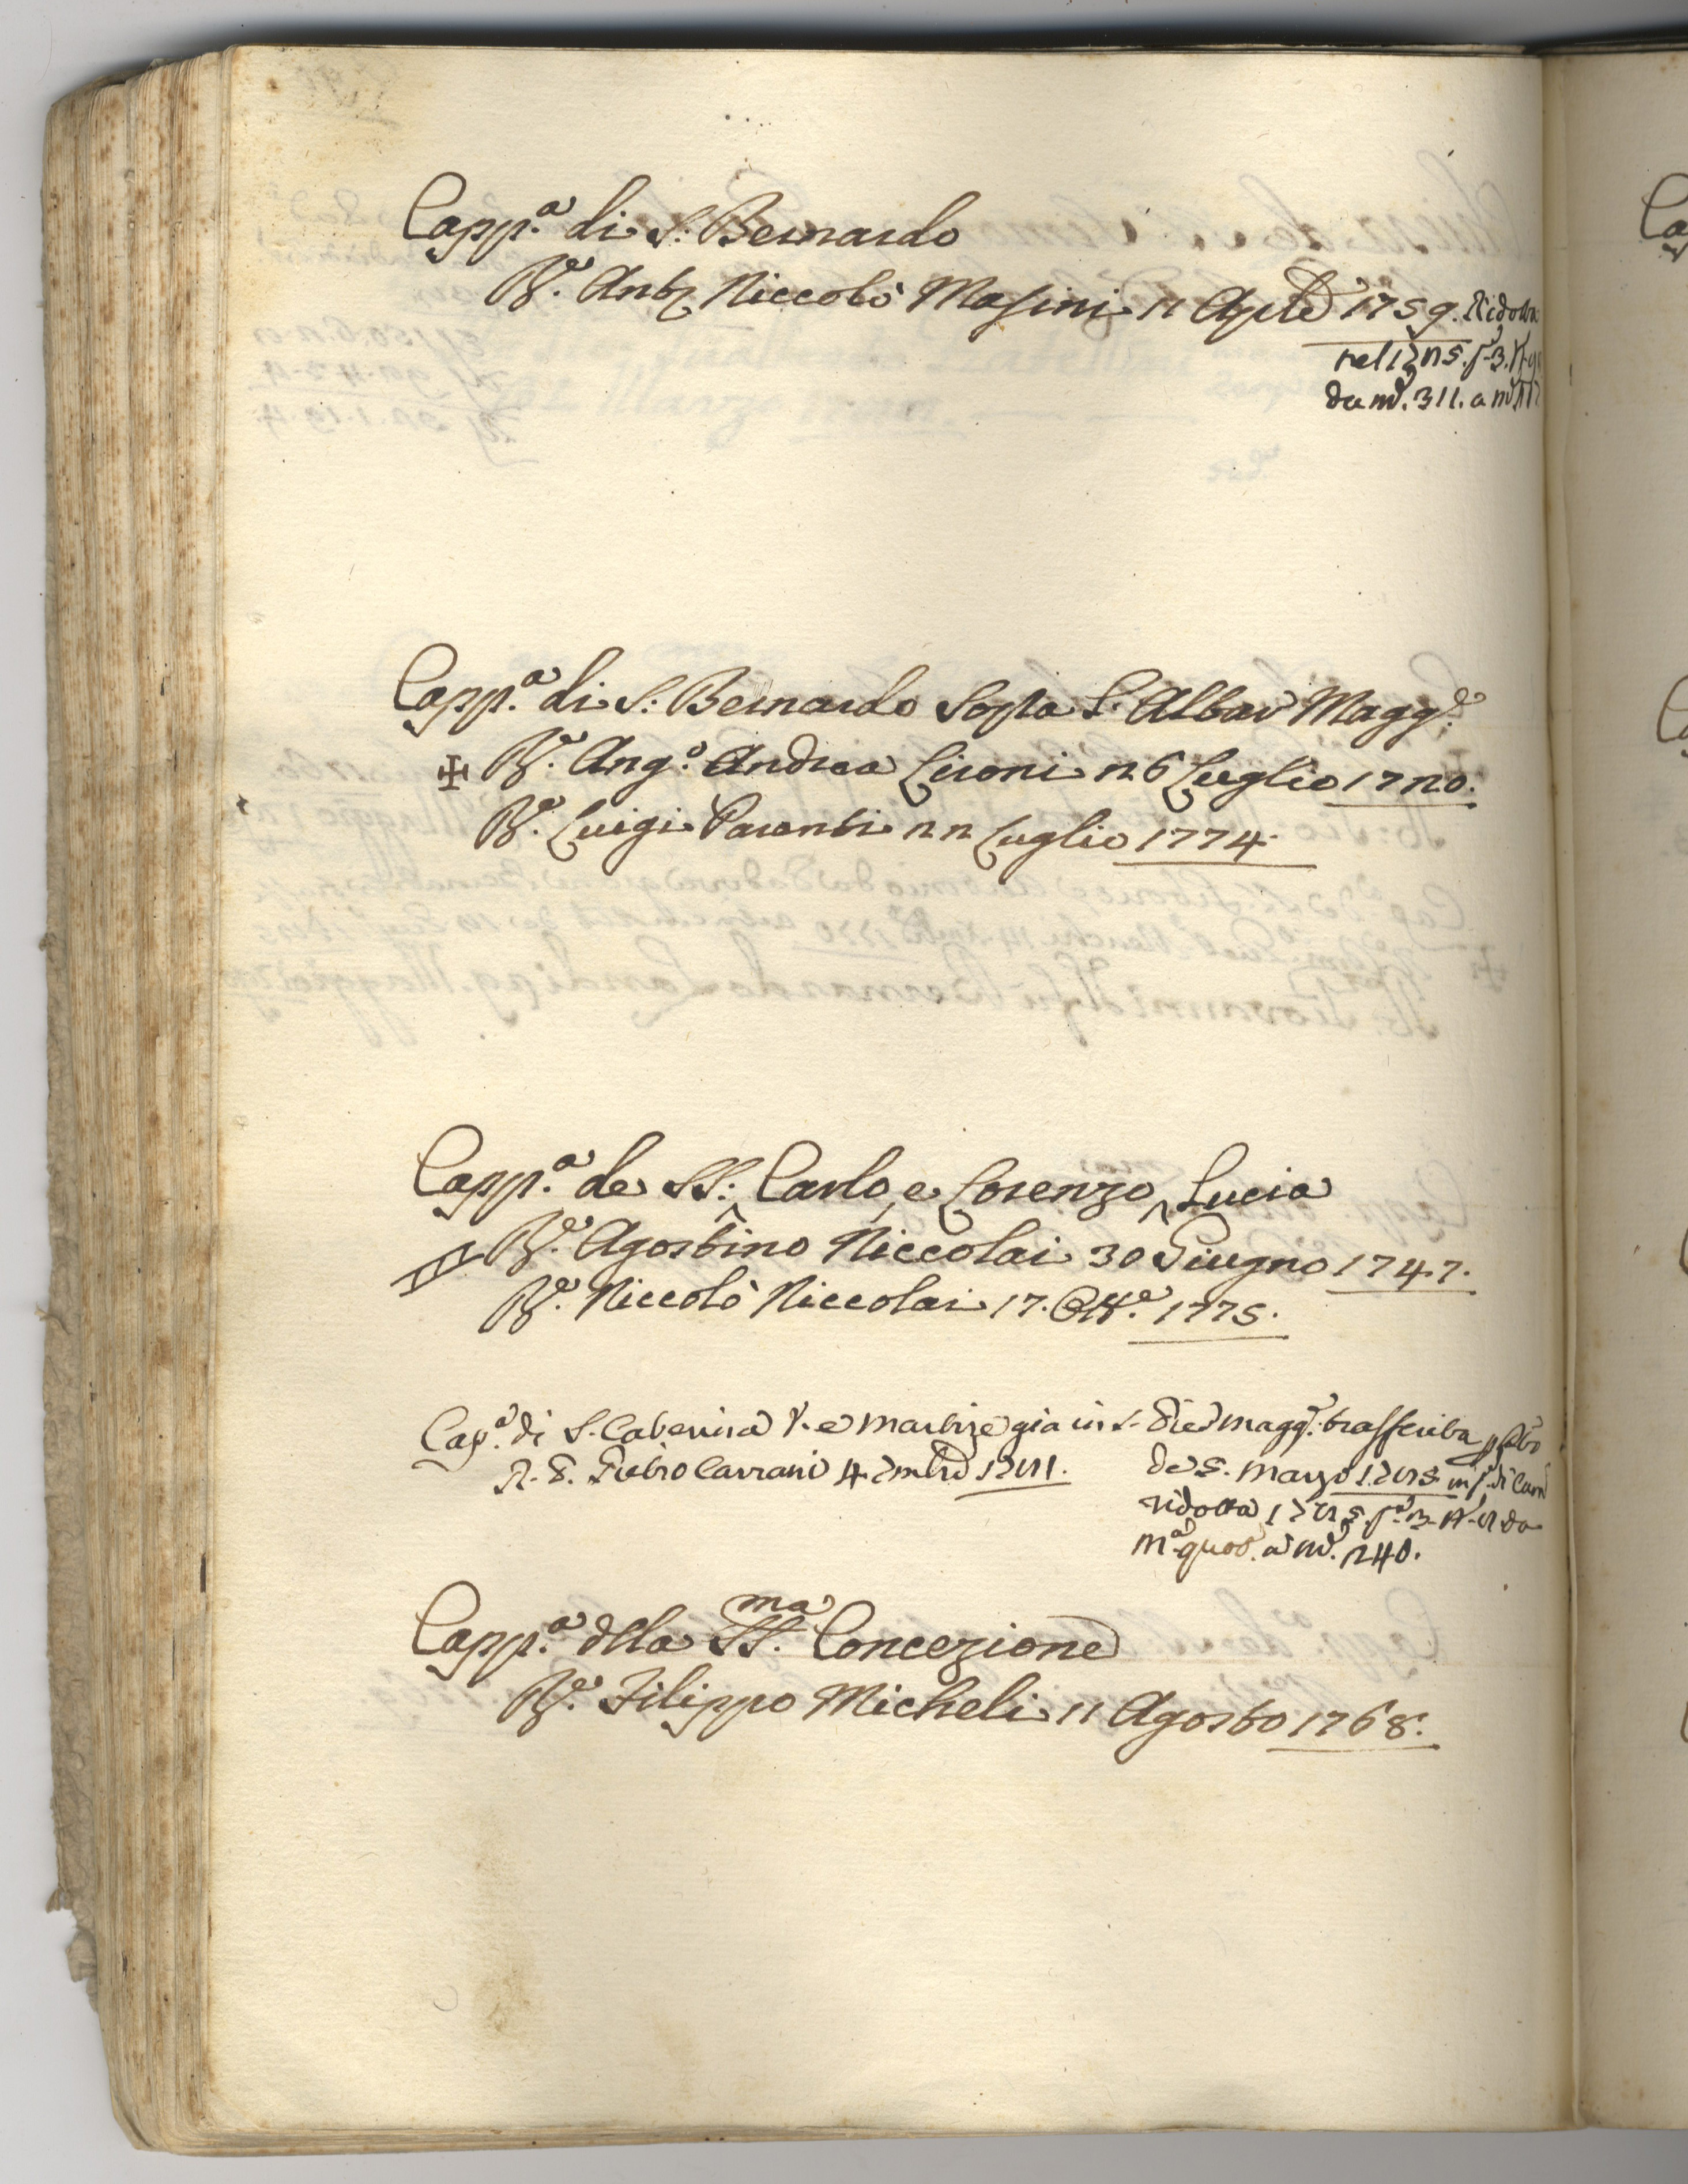 Capp.a di S: Bernardo
R.e Ant. Niccolò Masini 11 Aprile 1759. Ridotta
nel
da 311. a
Capp.a di S: Bernardo Sopra L'Altar Magg.e
R.e Ang.o Andrea Cironi 26 Luglio 1720.
R.e Luigi Parenti 22 Luglio 1774.
Capp.a de SS: Carlo, e Lorenzo, Lucia
R.e Agostino Niccolai 30 Giugno 1747.
R.e Niccolò Niccolai 17. Ott.e 1775.
Cap.a di S. Caterina V. e Martire gia in S. Pier Magg.e trasferita
Pietro Carrani 4.
de 5. Marzo
ridotta
a 240.
Capp.a della SS.ma Concezione
R.e Filippo Micheli 11 Agosto 1768.